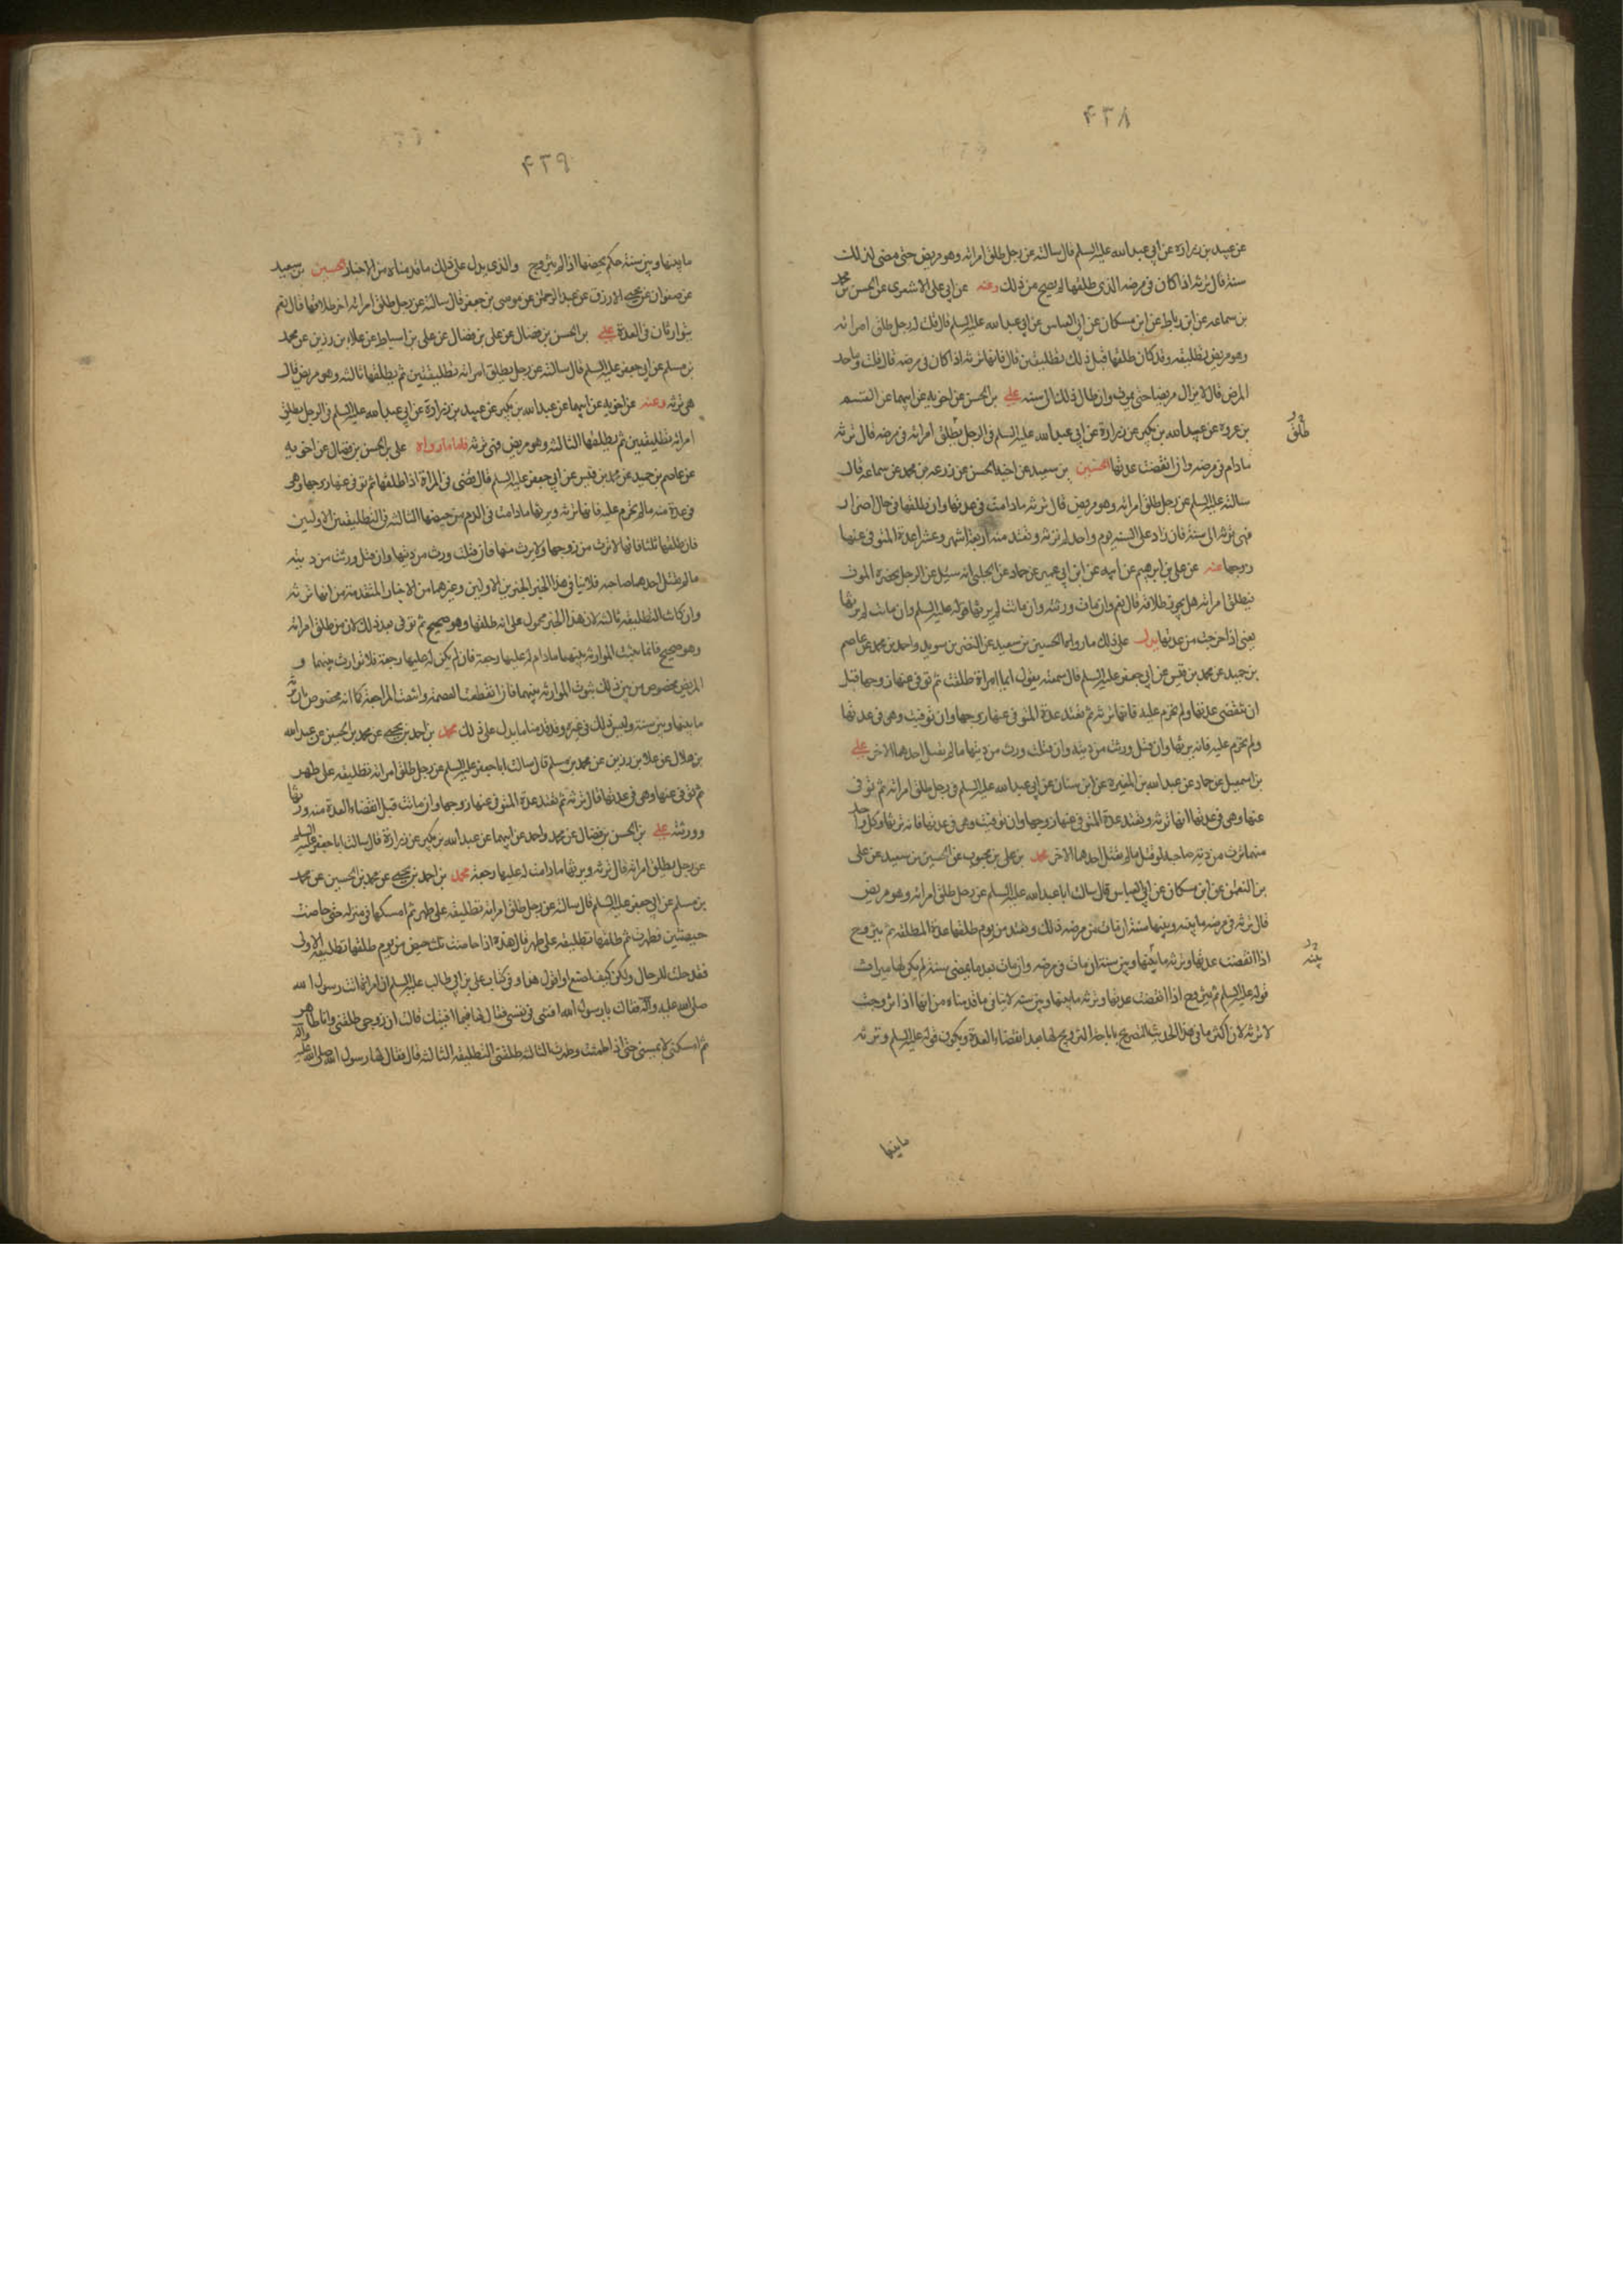 ٤٣٨
عن عبيد بن زرارة عن ابي عبد الله عليه السلم قال سالته عن رجل طلق امراته وهو مريض حتى مضى لذلك
سنة قال ترثه اذا كان في مرضه الذي طلقها لم يصح من ذلك وعنه عن ابي علي الاشعري عن الحسن بن محمد
بن سماعه عن ابن رباط عن ابن مسكان عن ابي العباس عن ابي عبد الله عليه السلم قال قلت له رجل طلق امراته
وهو مريض تطليقه وقد كان طلقها قبل ذلك تطليقتين قال فانها ترثه اذا كان في مرضه قال قلت وما حد
المرض قال لا يزال مريضا حتى يموت وان طال ذلك الى سنه علي بن الحسن عن اخويه عن ابيهما عن القسم
بن عروة عن عبيد الله بن بكير عن زرارة عن ابي عبد الله عليه السلم في الرجل يطلق امراته في مرضه قال ترثه
طلق
مادام في مرضه وان انقضت عدتها الحسين بن سعيد عن اخيه الحسن عن زرعه بن محمد عن سماعه قال
سالته عليه السلم عن رجل طلق امراته وهو مريض قال ترثه مادامت في عدتها وان طلقها في حال اضرار
فهي ترثه الى سنة فان زاد على السنه يوم واحد لم ترثه وتعتد منه اربعة اشهر وعشرا عدة المتوفى عنها
زوجها عنه عن علي بن ابرهيم عن ابيه عن ابن ابي عمير عن حماد عن الحلبي انه سئل عن الرجل يحضره الموت
فيطلق امراته هل يجوز طلاقه قال نعم وان مات ورثته وان ماتت لم يرثها قوله عليه السلم وان ماتت لم يرثها
يعني اذا خرجت من عدتها يدل على ذلك ما رواه الحسين بن سعيد عن النضر بن سويد واحد بن محمد عن عاصم
بن حميد عن محمد بن قيس عن ابي جعفر عليه السلم قال سمعته يقول ايما امراة طلقت ثم توفى عنها زوجها قبل
ان تنقضي عدتها ولم تحرم عليه فانها ترثه ثم تعتد عدة المتوفى عنها زوجها وان توفيت وهي في عدتها
ولم تحرم عليه فانه يرثها وان قتل ورثت من ديته وان قتلت ورث من ديتها ما لم يقتل احدهما الاخر علي
بن اسمعيل عن حماد عن عبد الله بن المغيره عن ابن سنان عن ابي عبد الله عليه السلم في رجل طلق امراته ثم توفى
عنها وهي في عدتها انها ترثه وتعتد عدة المتوفى عنها زوجها وان توفيت وهي في عدتها فانه يرثها وكل واحد
منهما يرث من دية صاحبه لو قتل ما لم يقتل احدهما الاخر محمد بن علي بن محبوب عن الحسين بن سعيد عن علي
بن النعمن عن ابن مسكان عن ابي العباس قال سالت ابا عبد الله عليه السلم عن رجل طلق امراته وهو مريض
قال ترثه في مرضه ما بينه وبينها سنة ان مات من مرضه ذلك وتعتد من يوم طلقها عدة المطلقه ثم يتزوج
اذا انقضت عدتها وترثه ما بينها وبين سنة ان مات في مرضه وان مات بعد ما يمضى سنة لم يكن لها ميراث
بينه
قوله عليه السلم ثم يتزوج اذا انقضت عدتها وترثه ما بينها وبين سنه لا ينافي ما قدمناه من انها اذا تزوجت
لا ترثه لان اكثر ما في هذا الحديث التصريح باباحة التزويج لها بعد انقضاء العدة ويكون قوله عليه السلم وترثه
ما بينها
٤٣٩
ما بينها وبين سنة حكم يخصها اذا لم يتزوج والذي يدل على ذلك ما قدمناه من الاخبار الحسين بن سعيد
عن صفوان عن يحيى الازرق عن عبد الرحمن عن موسى بن جعفر قال سالته عن رجل طلق امراته اخر طلاقها قال نعم
يتوارثان في العدة علي بن الحسن بن فضال عن علي بن فضال عن علي بن اسباط عن علاء بن رزين عن محمد
بن مسلم عن ابي جعفر عليه السلم قال سالته عن رجل يطلق امراته تطليقتين ثم يطلقها ثالثه وهو مريض قال
هي ترثه وعنه عن اخويه عن ابيهما عن عبد الله بن بكير عن عبيد بن زرارة عن ابي عبد الله عليه السلم في الرجل يطلق
امراته تطليقتين ثم يطلقها الثالثه وهو مريض فهي ترثه فاما ما رواه علي بن الحسن بن فضال عن اخويه
عن عاصم بن حميد عن محمد بن قيس عن ابي جعفر عليه السلم قال قضى في المراة اذا طلقها ثم توفى عنها زوجها وهي
في عدة منه ما لم تحرم عليه فانها ترثه ويرثها مادامت في الدم من حيضها الثالثه في التطليقتين الاولتين
فان طلقها ثلثا فانها لا ترث من زوجها ولا يرث منها فان قتلت ورث من ديتها وان قتل ورثت من ديته
ما لم يقتل احدهما صاحبه فلا ينافي هذا الخبر الخبرين الاولين وغيرهما من الاخبار المتقدمة من انها ترثه
وان كانت التطليقه ثالثه لان هذا الخبر محمول على انه طلقها وهو صحيح ثم توفى بعد ذلك لان من طلق امراته
وهو صحيح فانما يثبت الموارثه بينهما مادام له عليها رجعة فان لم يكن له عليها رجعة فلا توارث بينهما و
المريض مخصوص من بين ذلك بثبوت الموارثه بينهما فان انقطعت العصمه وانتفت المراجعة كما انه مخصوص بان ترثه
ما بينها وبين سنة وليس ذلك في غيره وقد قدمنا ما يدل على ذلك محمد بن احمد بن يحيى عن محمد بن الحسين عن عبد الله
بن هلال عن علا بن رزين عن محمد بن مسلم قال سالت ابا جعفر عليه السلم عن رجل طلق امراته تطليقه على طهر
ثم توفى عنها وهي في عدتها قال ترثه ثم تعتد عدة المتوفى عنها زوجها وان ماتت قبل انقضاء العدة منه ورثها
وورثته علي بن الحسن بن فضال عن محمد واحمد عن ابيهما عن عبد الله بن بكير عن زرارة قال سالت ابا جعفر عليه السلم
عن رجل يطلق امراته قال ترثه ويرثها مادامت له عليها رجعة محمد بن احمد بن يحيى عن محمد بن الحسين عن محمد
بن مسلم عن ابي جعفر عليه السلم قال سالته عن رجل طلق امراته تطليقه على طهر ثم امسكها في منزله حتى حاضت
حيضتين وطهرت ثم طلقها تطليقه على طهر قال هذه اذا حاضت ثلث حيض من يوم طلقها تطليقه الاولى
فقد حلت للرجال ولكن كيف اصنع او اقول هذا وفي كتاب علي بن ابي طالب عليه السلم ان امراة اتت رسول الله
صلى الله عليه وآله فقالت يا رسول الله افتني في نفسي فقال لها فيما افتيك قالت ان زوجي طلقني وانا طاهر
ثم امسكني لا يمسني حتى اذا طمثت وطهرت الثالثه طلقني التطليقه الثالثه قال فقال لها رسول الله صلى الله عليه وآله